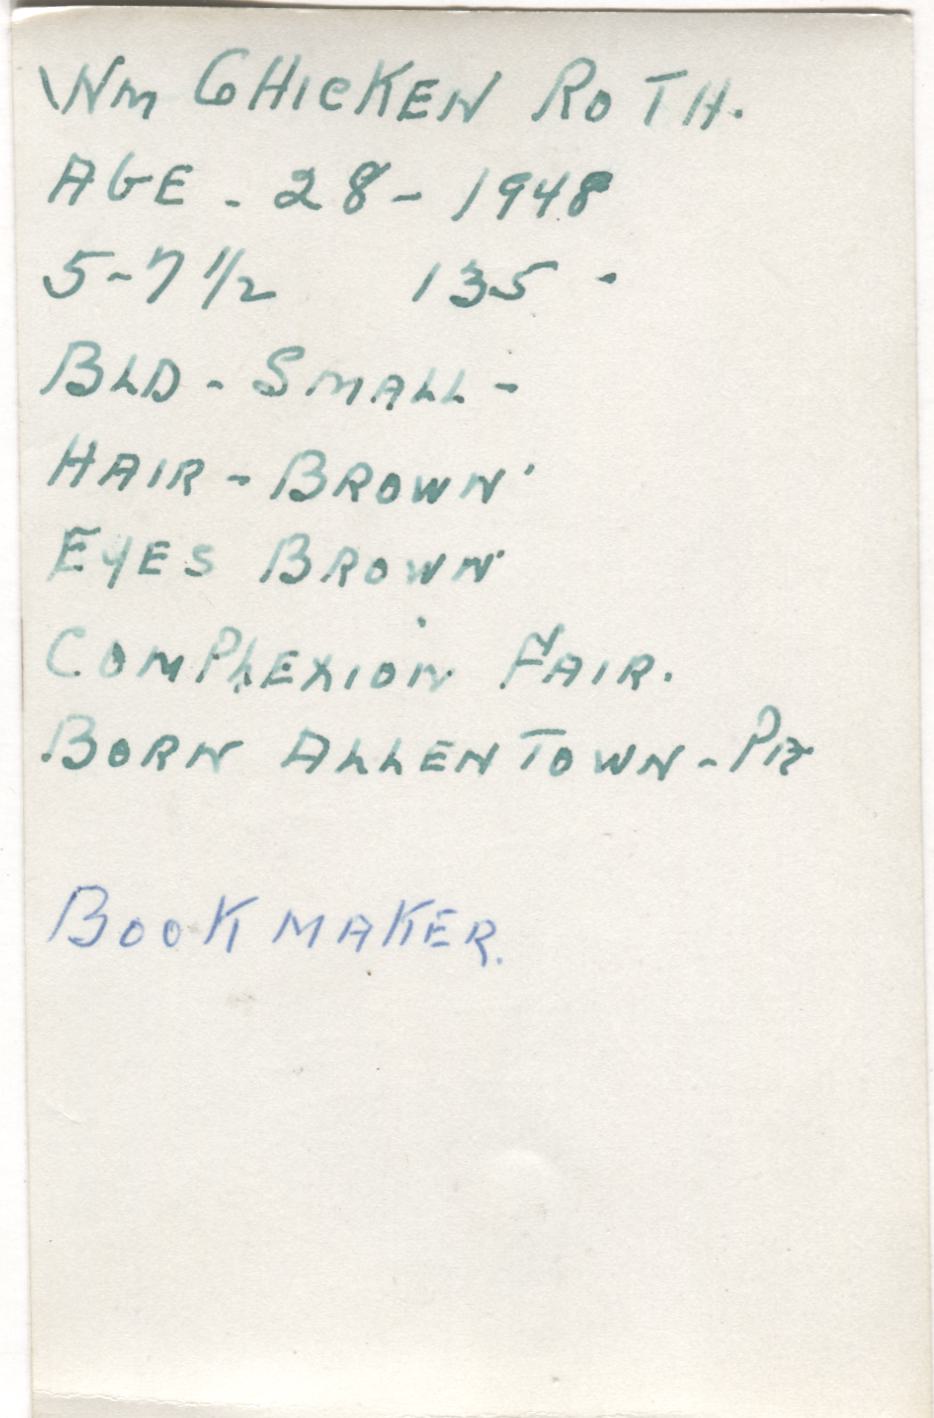 Wm CHICKEN ROTH.
AGE - 28 - 1948
5-7 1/2 135 -
BLD - SMALL -
HAIR - BROWN
EYES BROWN
COMPLEXION FAIR.
BORN ALLENTOWN - PA
BOOKMAKER.